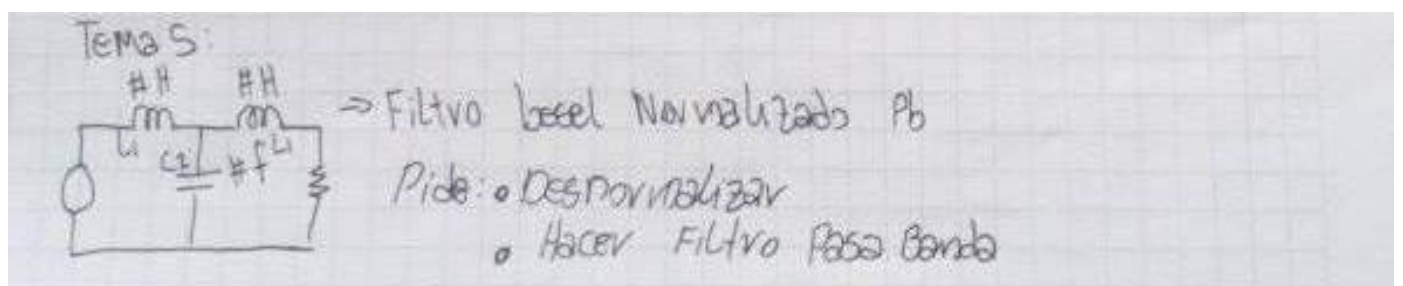 Tema 5:
#H #H
L1 C2 #f L1
⇒ Filtro besel Normalizado Pb
Pide: • Desnormalizar
• Hacer Filtro Pasa Banda